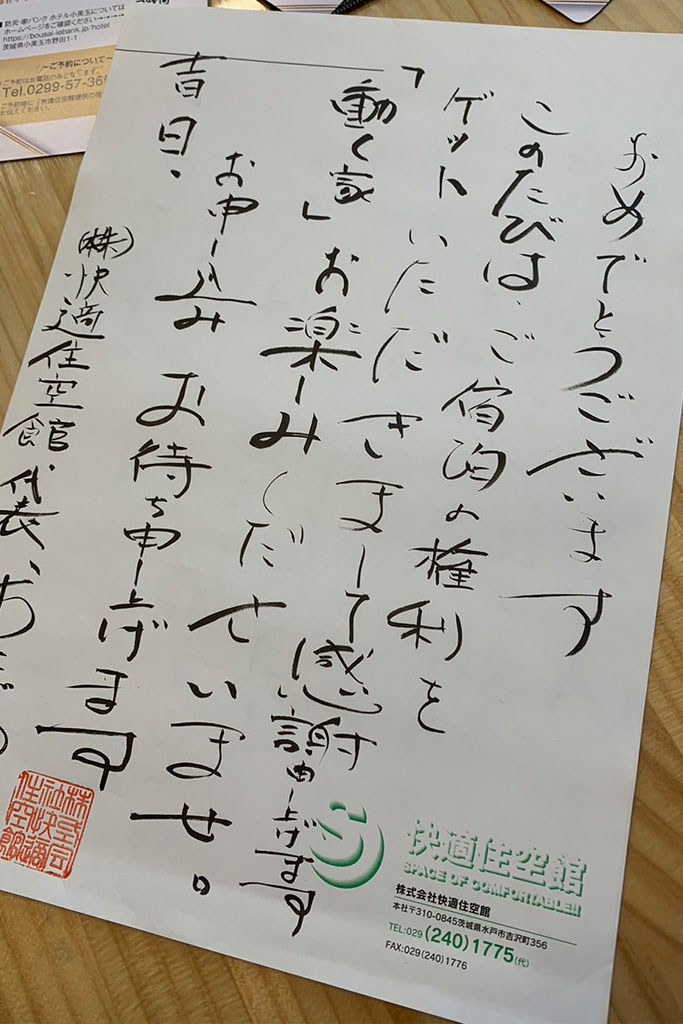 おめでとうございます
このたびは、ご宿泊の権利を
ゲットいただきまして感謝申し上げます
「動く家」お楽しみくださいませ。
お申し込みお待ち申し上げます
吉日、
㈱快適住空館 代表、
株式会社快適住空館
快適住空館
SPACE OF COMFORTABLE!!
株式会社快適住空館
本社〒310-0845茨城県水戸市吉沢町356
TEL:029(240)1775(代)
FAX:029(240)1776
■ 防災・家バンク ホテル小美玉については
ホームページをご確認ください
https://bousai-iebank.jp/hotel
茨城県小美玉市野田1-1
〜ご予約について〜
ご予約はお電話のみとなります。
Tel.0299-57-36